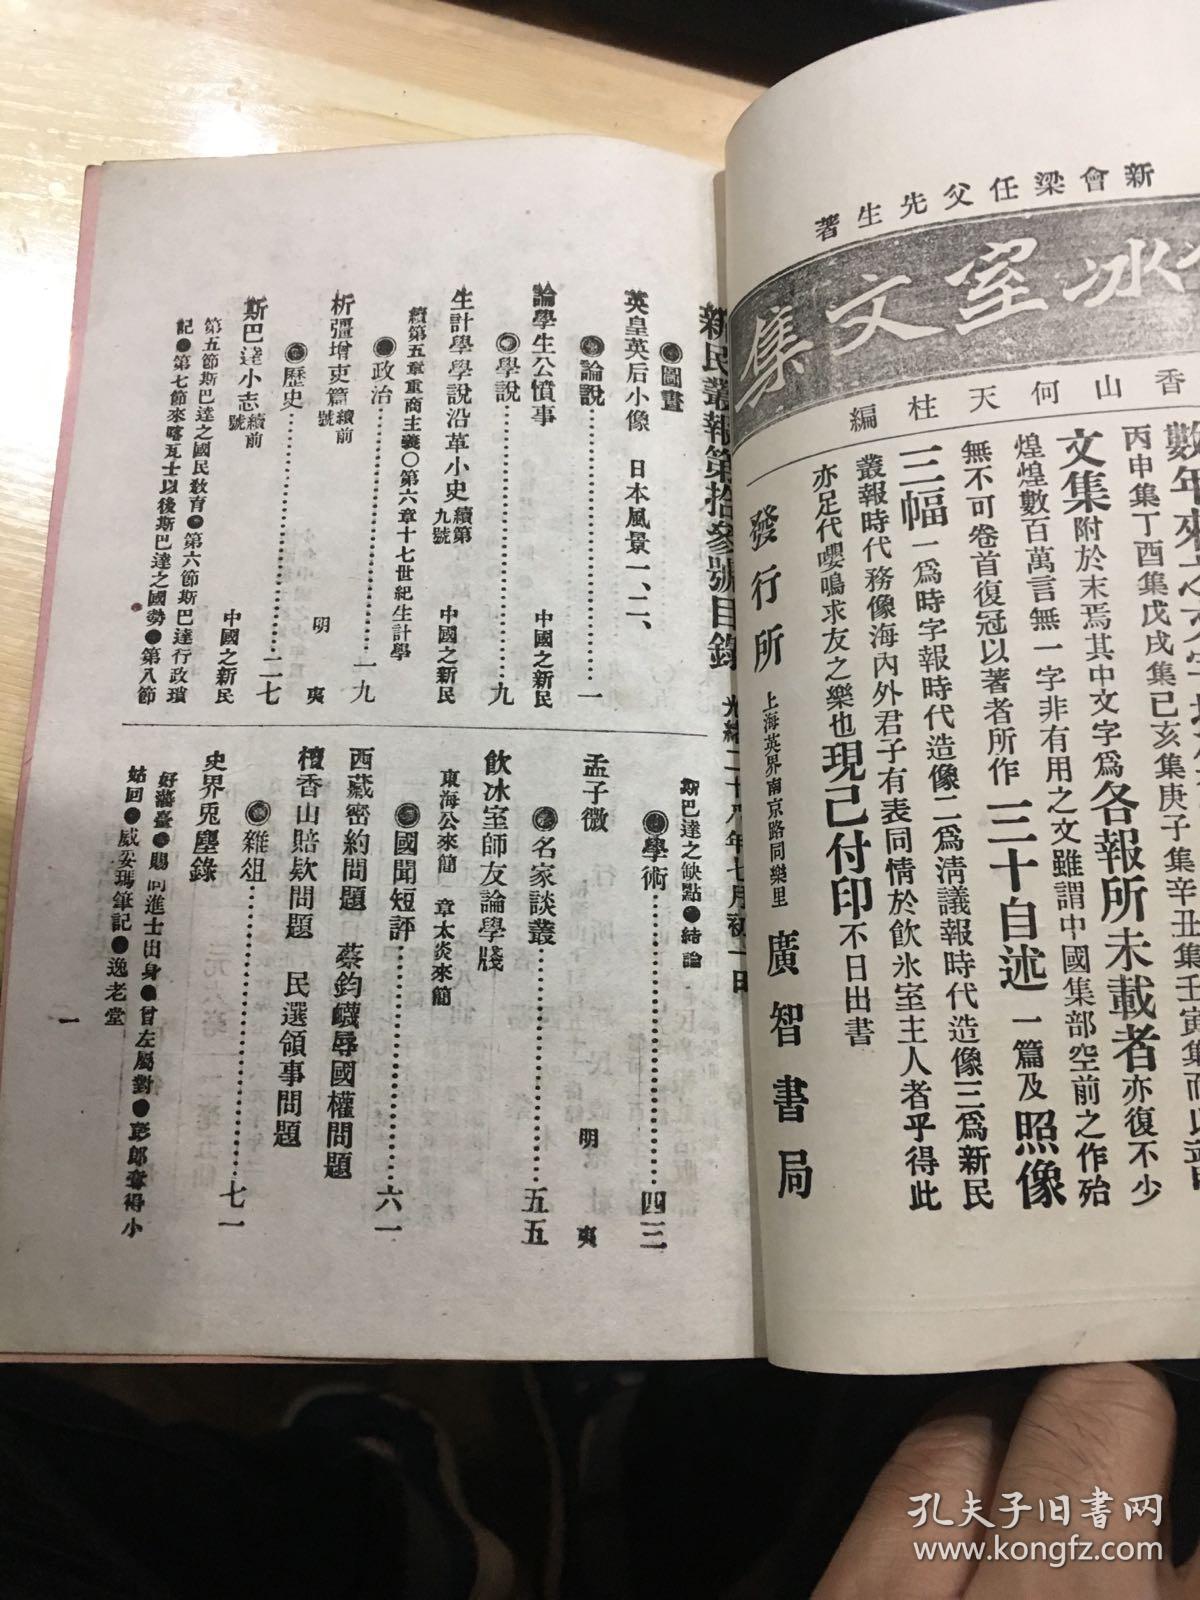 新會梁任父先生著
冰室文集
香山何天柱編
丙申集丁酉集戊戌集已亥集庚子集辛丑集壬寅集而以
文集附於末焉其中文字爲各報所未載者亦復不少
煌煌數百萬言無一字非有用之文雖謂中國集部空前之作殆
無不可卷首復冠以著者所作三十自述一篇及照像
三幅一爲時字報時代造像二爲淸議報時代造像三爲新民
叢報時代務像海內外君子有表同情於飲氷室主人者乎得此
亦足代嚶鳴求友之樂也現已付印不日出書
發行所 上海英界南京路同樂里 廣智書局
新民叢報第拾參號目錄 光緒二十八年七月初一日
◉圖畫
英皇英后小像 日本風景一、二、
◉論說……一
論學生公憤事 中國之新民
◉學說……九
生計學學說沿革小史 續第九號 中國之新民
續第五章重商主義○第六章十七世紀生計學
◉政治……一九
析疆增吏篇 續前號 明夷
◉歷史……二七
斯巴達小志 續前號 中國之新民
第五節斯巴達之國民敎育●第六節斯巴達行政瑣
記●第七節來喀瓦士以後斯巴達之國勢●第八節
斯巴達之缺點●結論
◉學術……四三
孟子微 明夷
◉名家談叢……五五
飲冰室師友論學牋
東海公來簡 章太炎來簡
◉國聞短評……六一
西藏密約問題 蔡鈞衊辱國權問題
檀香山賠欵問題 民選領事問題
◉雜俎……七一
史界兎塵錄
好講臺●賜同進士出身●曾左屬對●彭郎奪得小
姑回●威妥瑪筆記●逸老堂
一
孔夫子旧书网
www.kongfz.com